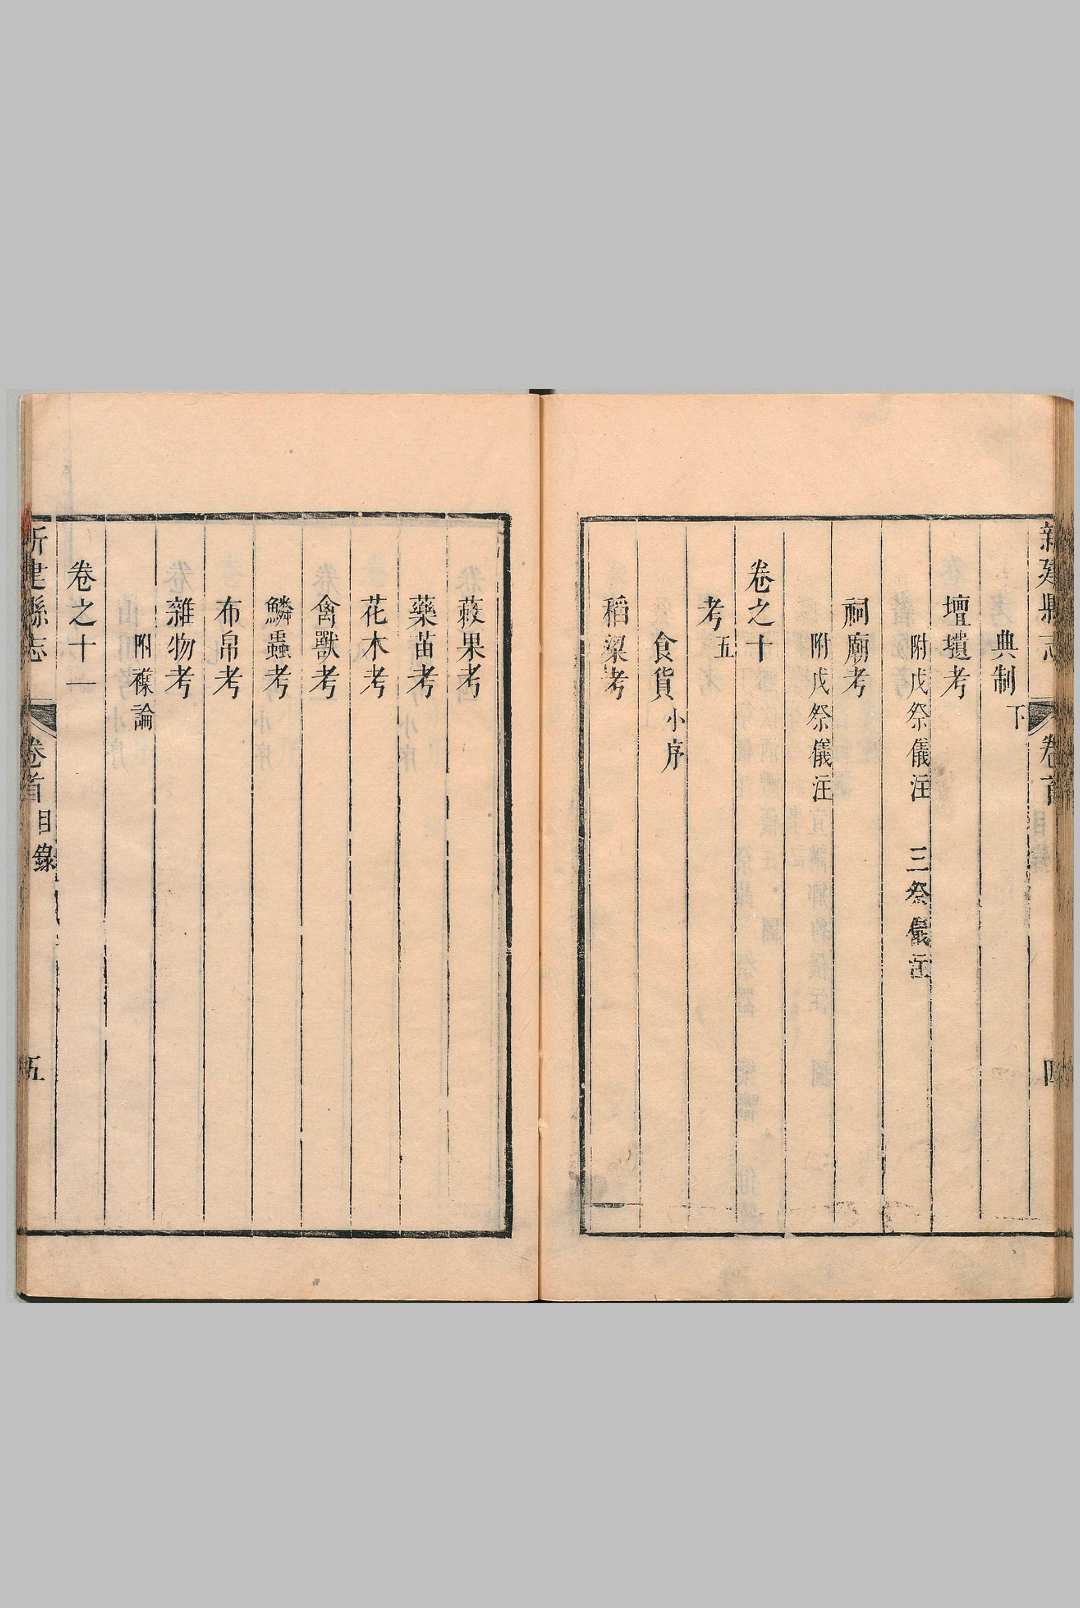 新建縣志 卷首 四
典制下
壇壝考
附戊祭儀注 三祭儀注
祠廟考
附戊祭儀注
卷之十
考五
食貨小序
稻粱考
蓛果考
藥苗考
花木考
禽獸考
鱗蟲考
布帛考
雜物考
附襍論
卷之十一
新建縣志 卷首 目錄 五